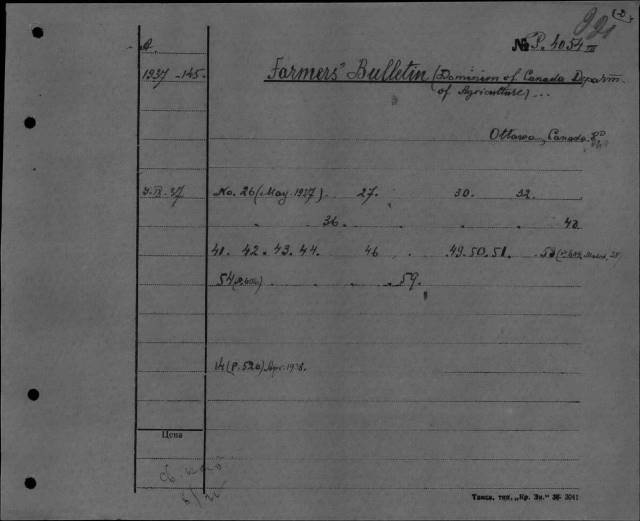 № P. 4054 III
A.
1937 - 145.
Farmers' Bulletin (Dominion of Canada Departm.
of Agriculture)...
Ottawa, Canada.
9.IX.37 No. 26 (May 1937) 27. 30. 32.
36. 40
41. 42. 43. 44. 46 49. 50. 51. 53
54 59.
14 (P. 520) Apr. 1938.
Цена
Тамб. тип. „Кр. Зн." 3041